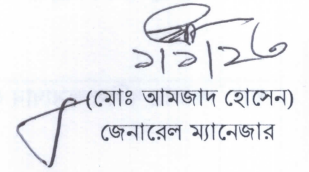 ১|১|২৩
(মোঃ আমজাদ হোসেন)
জেনারেল ম্যানেজার